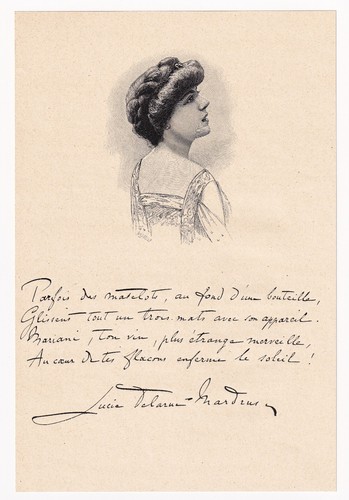 Parfois des matelots, au fond d'une bouteille,
Glissent tout un trois-mats avec son appareil.
Mariani, ton vin, plus étrange merveille,
Au cœur de tes flacons enferme le soleil !
Lucie Delarue-Mardrus